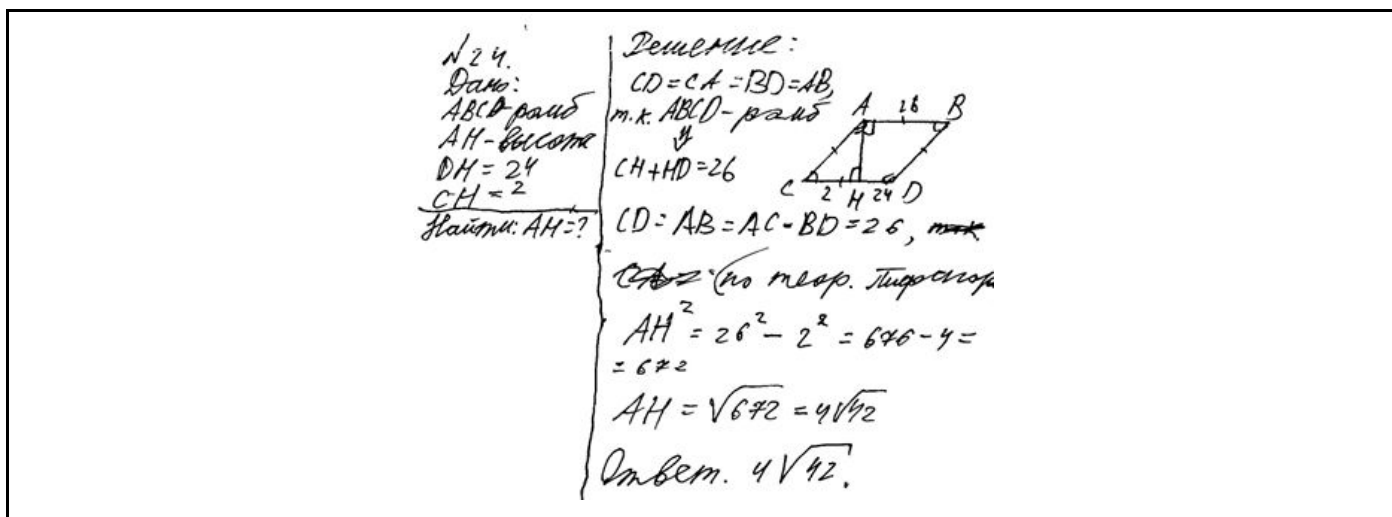 N24.
Дано:
ABCD-ромб
AH-высота
DH = 24
CH = 2
Найти: AH=?
Решение:
CD=CA=BD=AB,
т.к. ABCD-ромб
⇓
CH+HD=26
A 26 B
C 2 H 24 D
CD=AB=AC=BD=26,
(по теор. Пифагор
AH² = 26² - 2² = 676-4=
= 672
AH = √672 = 4√42
Ответ. 4√42.